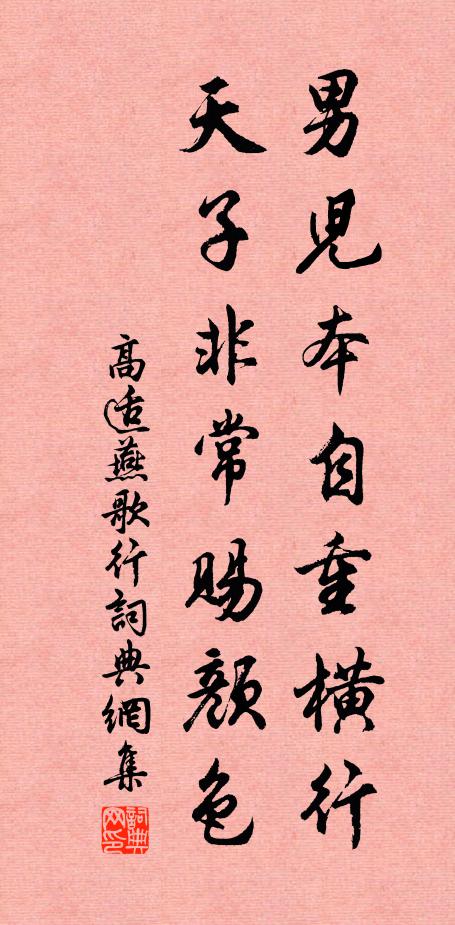 男兒本自重橫行
天子非常賜顏色
高适燕歌行詞典網集
詞典网印